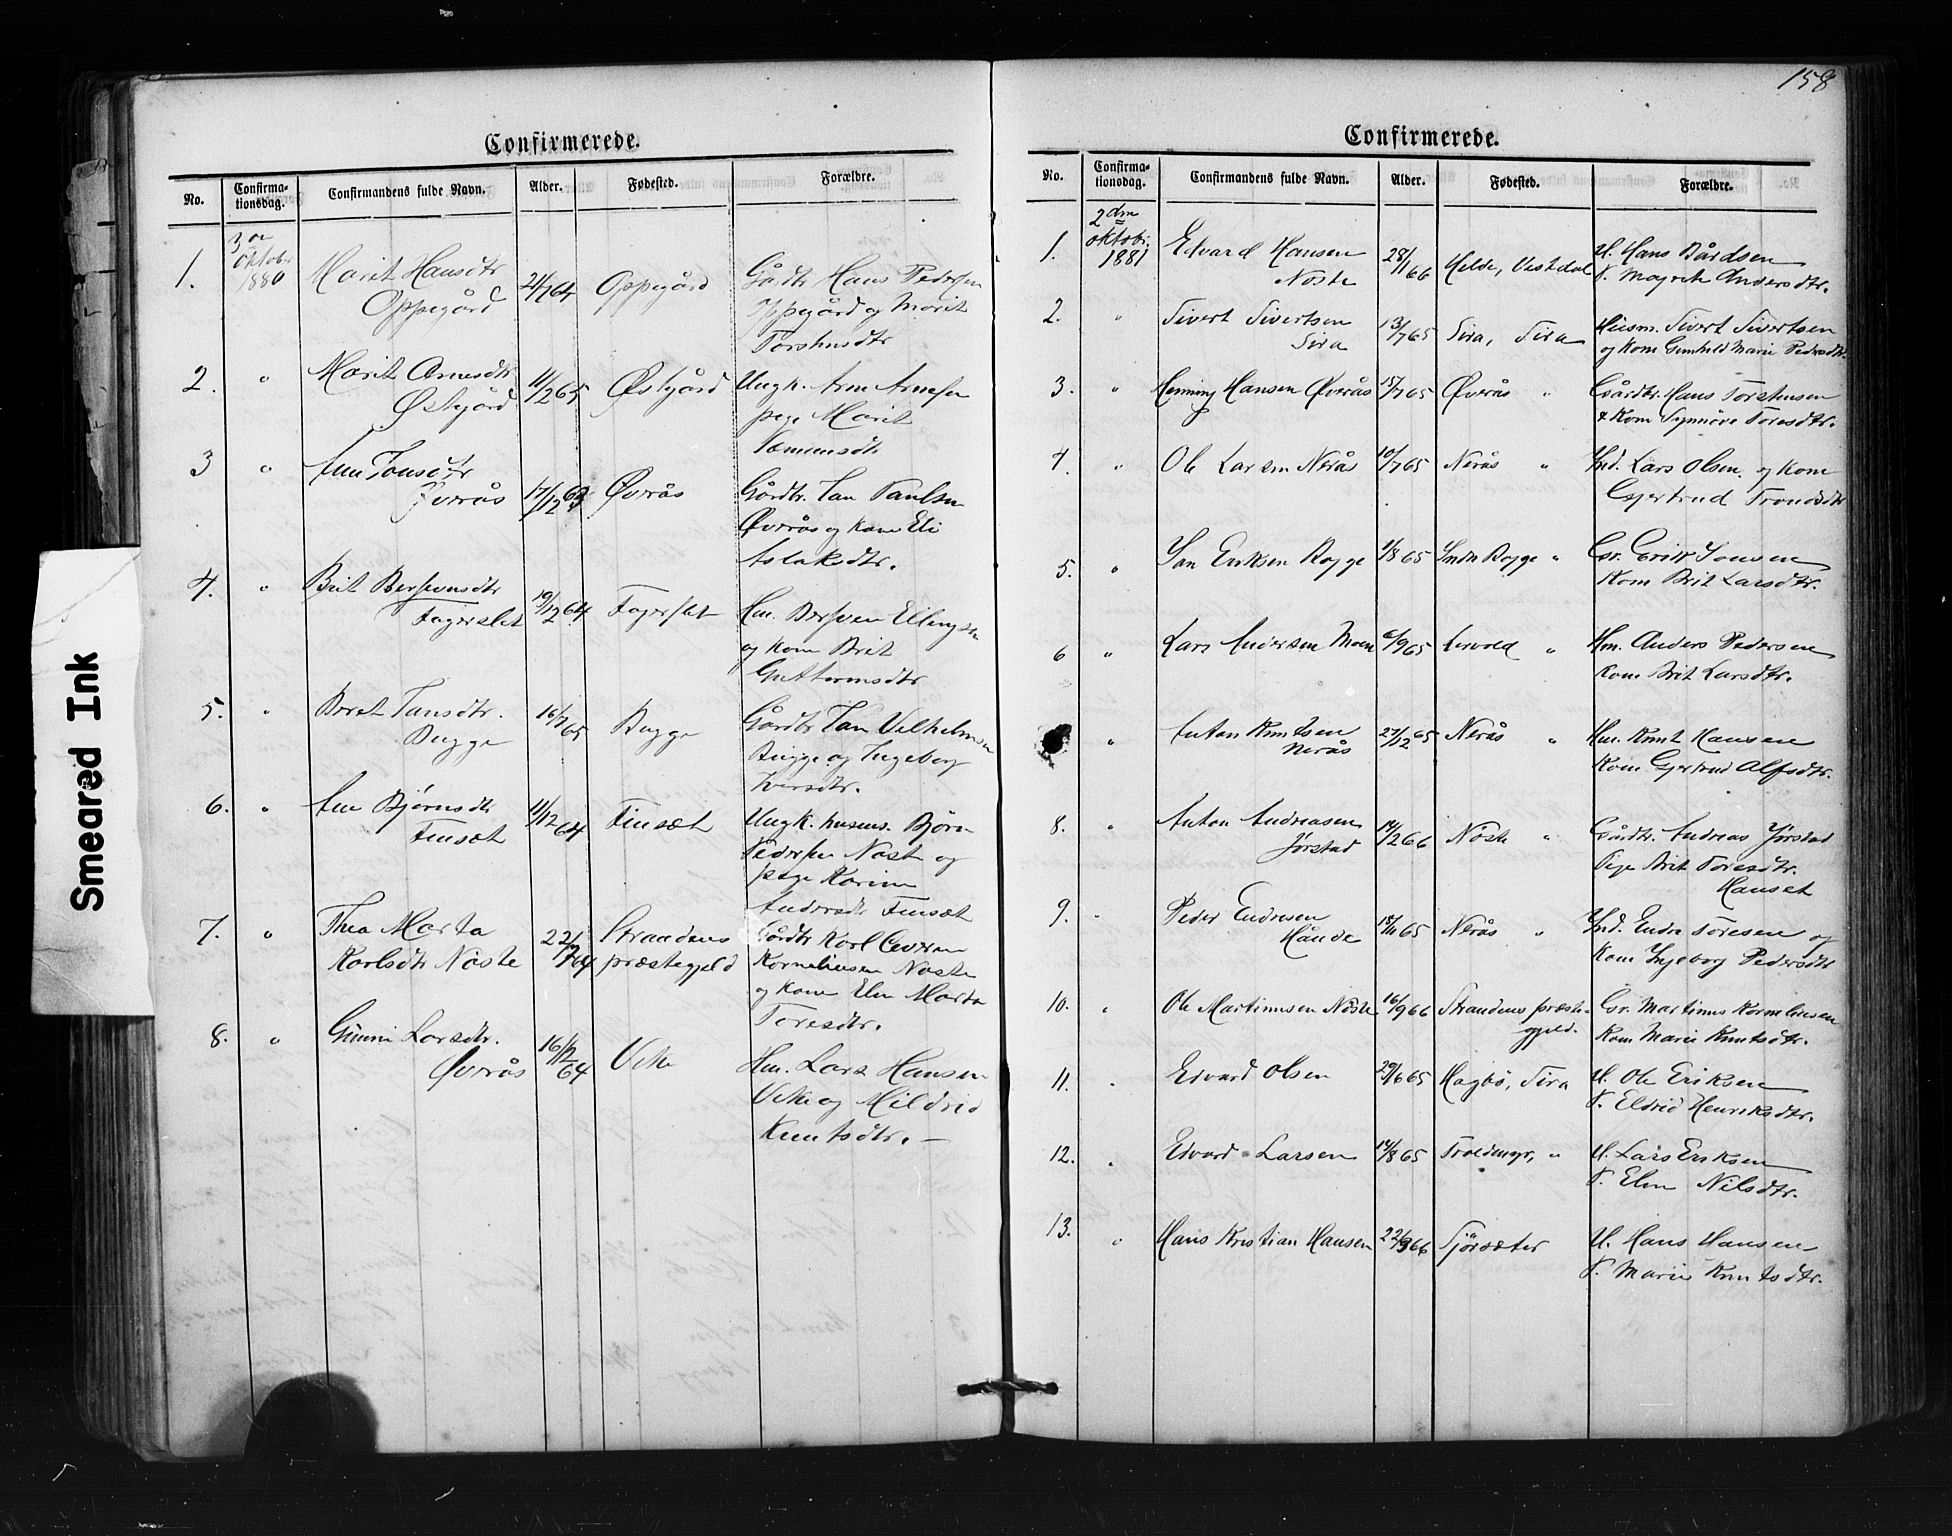 158
Smeared Ink
Confirmerede.
No. Confirmationsdag. Confirmandens fulde Navn. Alder. Fødested. Forældre.
3die Oktober 1880
1. Marit Hansdtr Oppegård 24/7 64 Oppegård Gårdbr Hans Pedersen
Oppegård og Marit
Torshusdtr
2. " Marit Arnesdtr Østigård 11/2 65 Østigård Ungk. Arn Arnesen
pige Marit
3 " Ane Jonsdtr Øverås 17/12 63 Øverås Gårdbr. Jon Paulsen
Øverås og Kone Eli
Aslaksdtr.
4. " Brit Bersvensdtr Fagerslet 19/12 64 Fagerslet Hm. Bersven Ellingsen
og Kone Brit
Guttormsdtr
5. " Beret Jansdtr. Bugge 16/7 65 Bugge Gårdbr Jan Vilhelmsen
Bugge og Ingeborg
Iversdtr.
6. " Ane Bjørnsdtr Finsæt 11/12 64 Finsæt Ungk. husms. Bjørn
Pedersen Nøste og
pige Karine
Andersdtr Finsæt
7. " Thea Marta Karlsdtr Nøste 22/7 64 Strandens præstegjeld Gårdbr Karl Severin
Korneliusen Nøste
og Kone Elen Marta
Toresdtr.
8. " Gunni Larsdtr. Øverås 16/12 64 Vike Hm. Lars Hansen
Vike og Mildrid
Knutsdtr. —
Confirmerede.
No. Confirmationsdag. Confirmandens fulde Navn. Alder. Fødested. Forældre.
2den Oktobr. 1881
1. Edvard Hansen Nøste 28/1 66 Helde, Vestdal U. Hans Bårdsen
P. Magrete Andersdtr.
2. " Sivert Sivertsen Sira 13/7 65 Sira, Sira Husm. Sivert Sivertsen
og Kone Gunhild Marie Pedersdtr.
3. " Henning Hansen Øverås 15/7 65 Øverås " Gårdbr. Hans Torstensen
& Kone Synnøve Toresdtr.
4. " Ole Larsen Nerås 10/7 65 Nerås " Ind. Lars Olsen og Kone
Gjertrud Trondsdtr
5. " Jon Eriksen Bogge 1/8 65 Indr Bogge " Gr. Erik Jonsen
Kone Brit Larsdtr.
6 " Lars Andersen Moen 6/9 65 Lervold " Hm. Anders Pedersen
Kone Brit Larsdtr.
" Anton Knutsen Nerås 27/12 65 Nerås " Hm. Knut Hansen
Kone Gjertrud Alfsdtr.
8. " Anton Andreasen Jørstad 14/2 66 Nøste " Gårdbr. Andreas Jørstad
Pige Brit Toresdtr.
Hanset
9. " Peder Endresen Hånde 18/11 65 Nerås " Ind. Endre Toresen og
Kone Ingeborg Pedersdtr
10. " Ole Martinusen Nøste 16/9 66 Strandens præstegjeld. Gr. Martinus Korneliusen
Kone Marie Knutsdtr.
11. " Edvard Olsen 29/6 65 Hagbø, Sira U. Ole Eriksen
P. Eldrid Henriksdtr.
12. " Edvard Larsen 14/8 65 Troldmyr, " U. Lars Eriksen
P. Elen Nilsdtr.
13. " Hans Kristian Hansen 22/3 66 Sjøsæter U. Hans Hansen
P. Marie Knutsdtr.